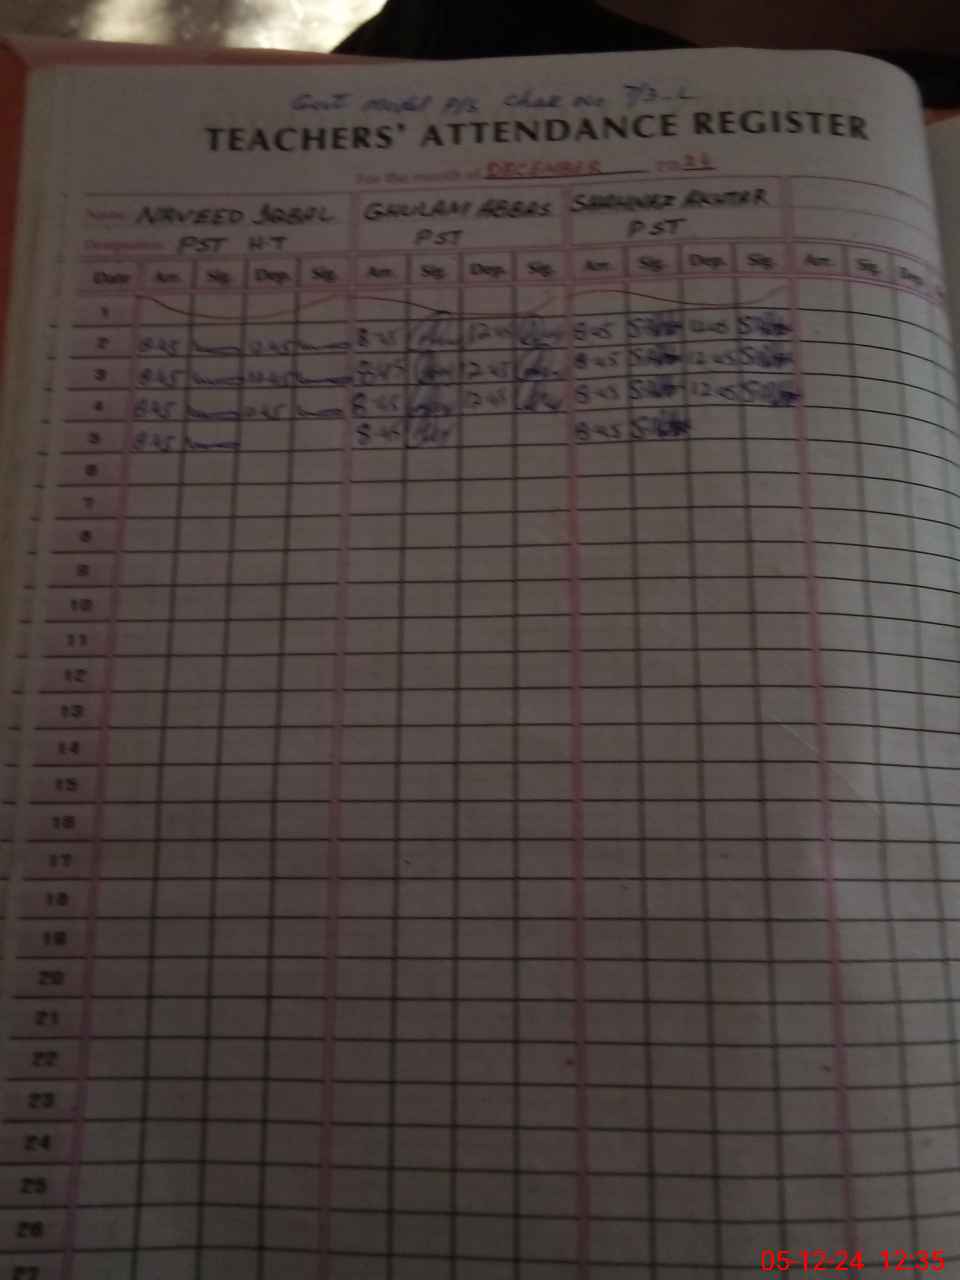 Govt Model P/S Chak No 7/3-L
TEACHERS' ATTENDANCE REGISTER
For the month of DECEMBER 2024
Name NAVEED IQBAL GHULAM ABBAS SHAHNAZ AKHTAR
Designation PST H.T PST PST
Date Arr. Sig. Dep. Sig. Arr. Sig. Dep. Sig. Arr. Sig. Dep. Sig. Arr. Sig. Dep.
1
2 8:45 12:45 8:45 12:45 8:45 12:45
3 8:45 12:45 8:45 12:45 8:45 12:45
4 8:45 12:45 8:45 12:45 8:45 12:45
5 8:45 8:45 8:45
6
7
8
9
10
11
12
13
14
15
16
17
18
19
20
21
22
23
24
25
26
27
05-12-24 12:35